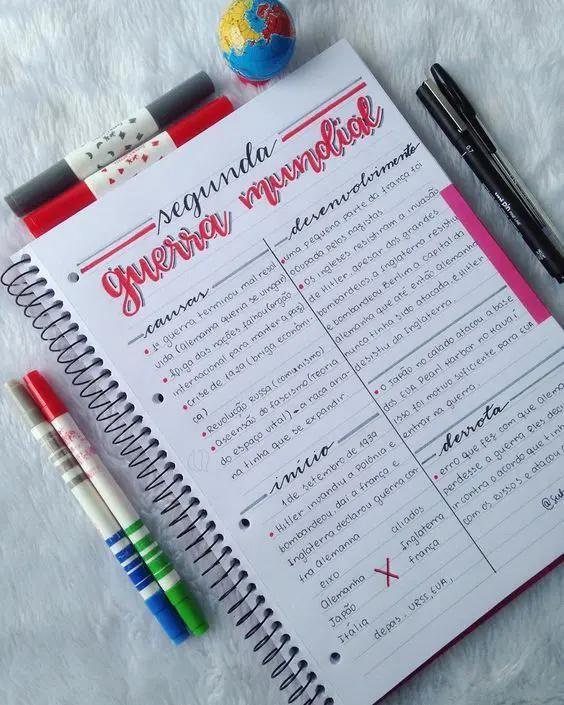 segunda
guerra mundial
causas
• 1ª guerra terminou mal resol
vida (Alemanha queria se vingar)
• A liga das nações falhou (órgão
internacional para manter a paz)
• Crise de 1929 (briga econômi
ca)
• Revolução Russa (comunismo)
• Ascensão do fascismo (teoria
do espaço vital) → a raça aria-
na tinha que se expandir.
início
1 de setembro de 1939
• Hitler invandiu a Polônia e
bombardeou, daí a frança e
Inglaterra declarou guerra con-
tra Alemanha
eixo
aliados
Alemanha
Inglaterra
Japão
X
frança
Itália
depois: URSS, EUA,
desenvolvimento
• uma pequena parte da frança foi
ocupada pelos nazistas
• Os ingleses resistiram a invasão
de Hitler, apesar dos grandes
bombardeios, a Inglaterra resistiu
e bombardeou Berlim a capital da
Alemanha que até então Alemanha
nunca tinha sido atacada, e Hitler
desistiu da Inglaterra.
• O Japão no calado atacou a base
dos EUA Pearl Harbor no Havaí,
isso foi motivo suficiente para EUA
entrar na guerra.
derrota
• erro que fez com que Alema
perdesse a guerra. Eles deci
incontra o acordo que tinh
com os Russos e atacou